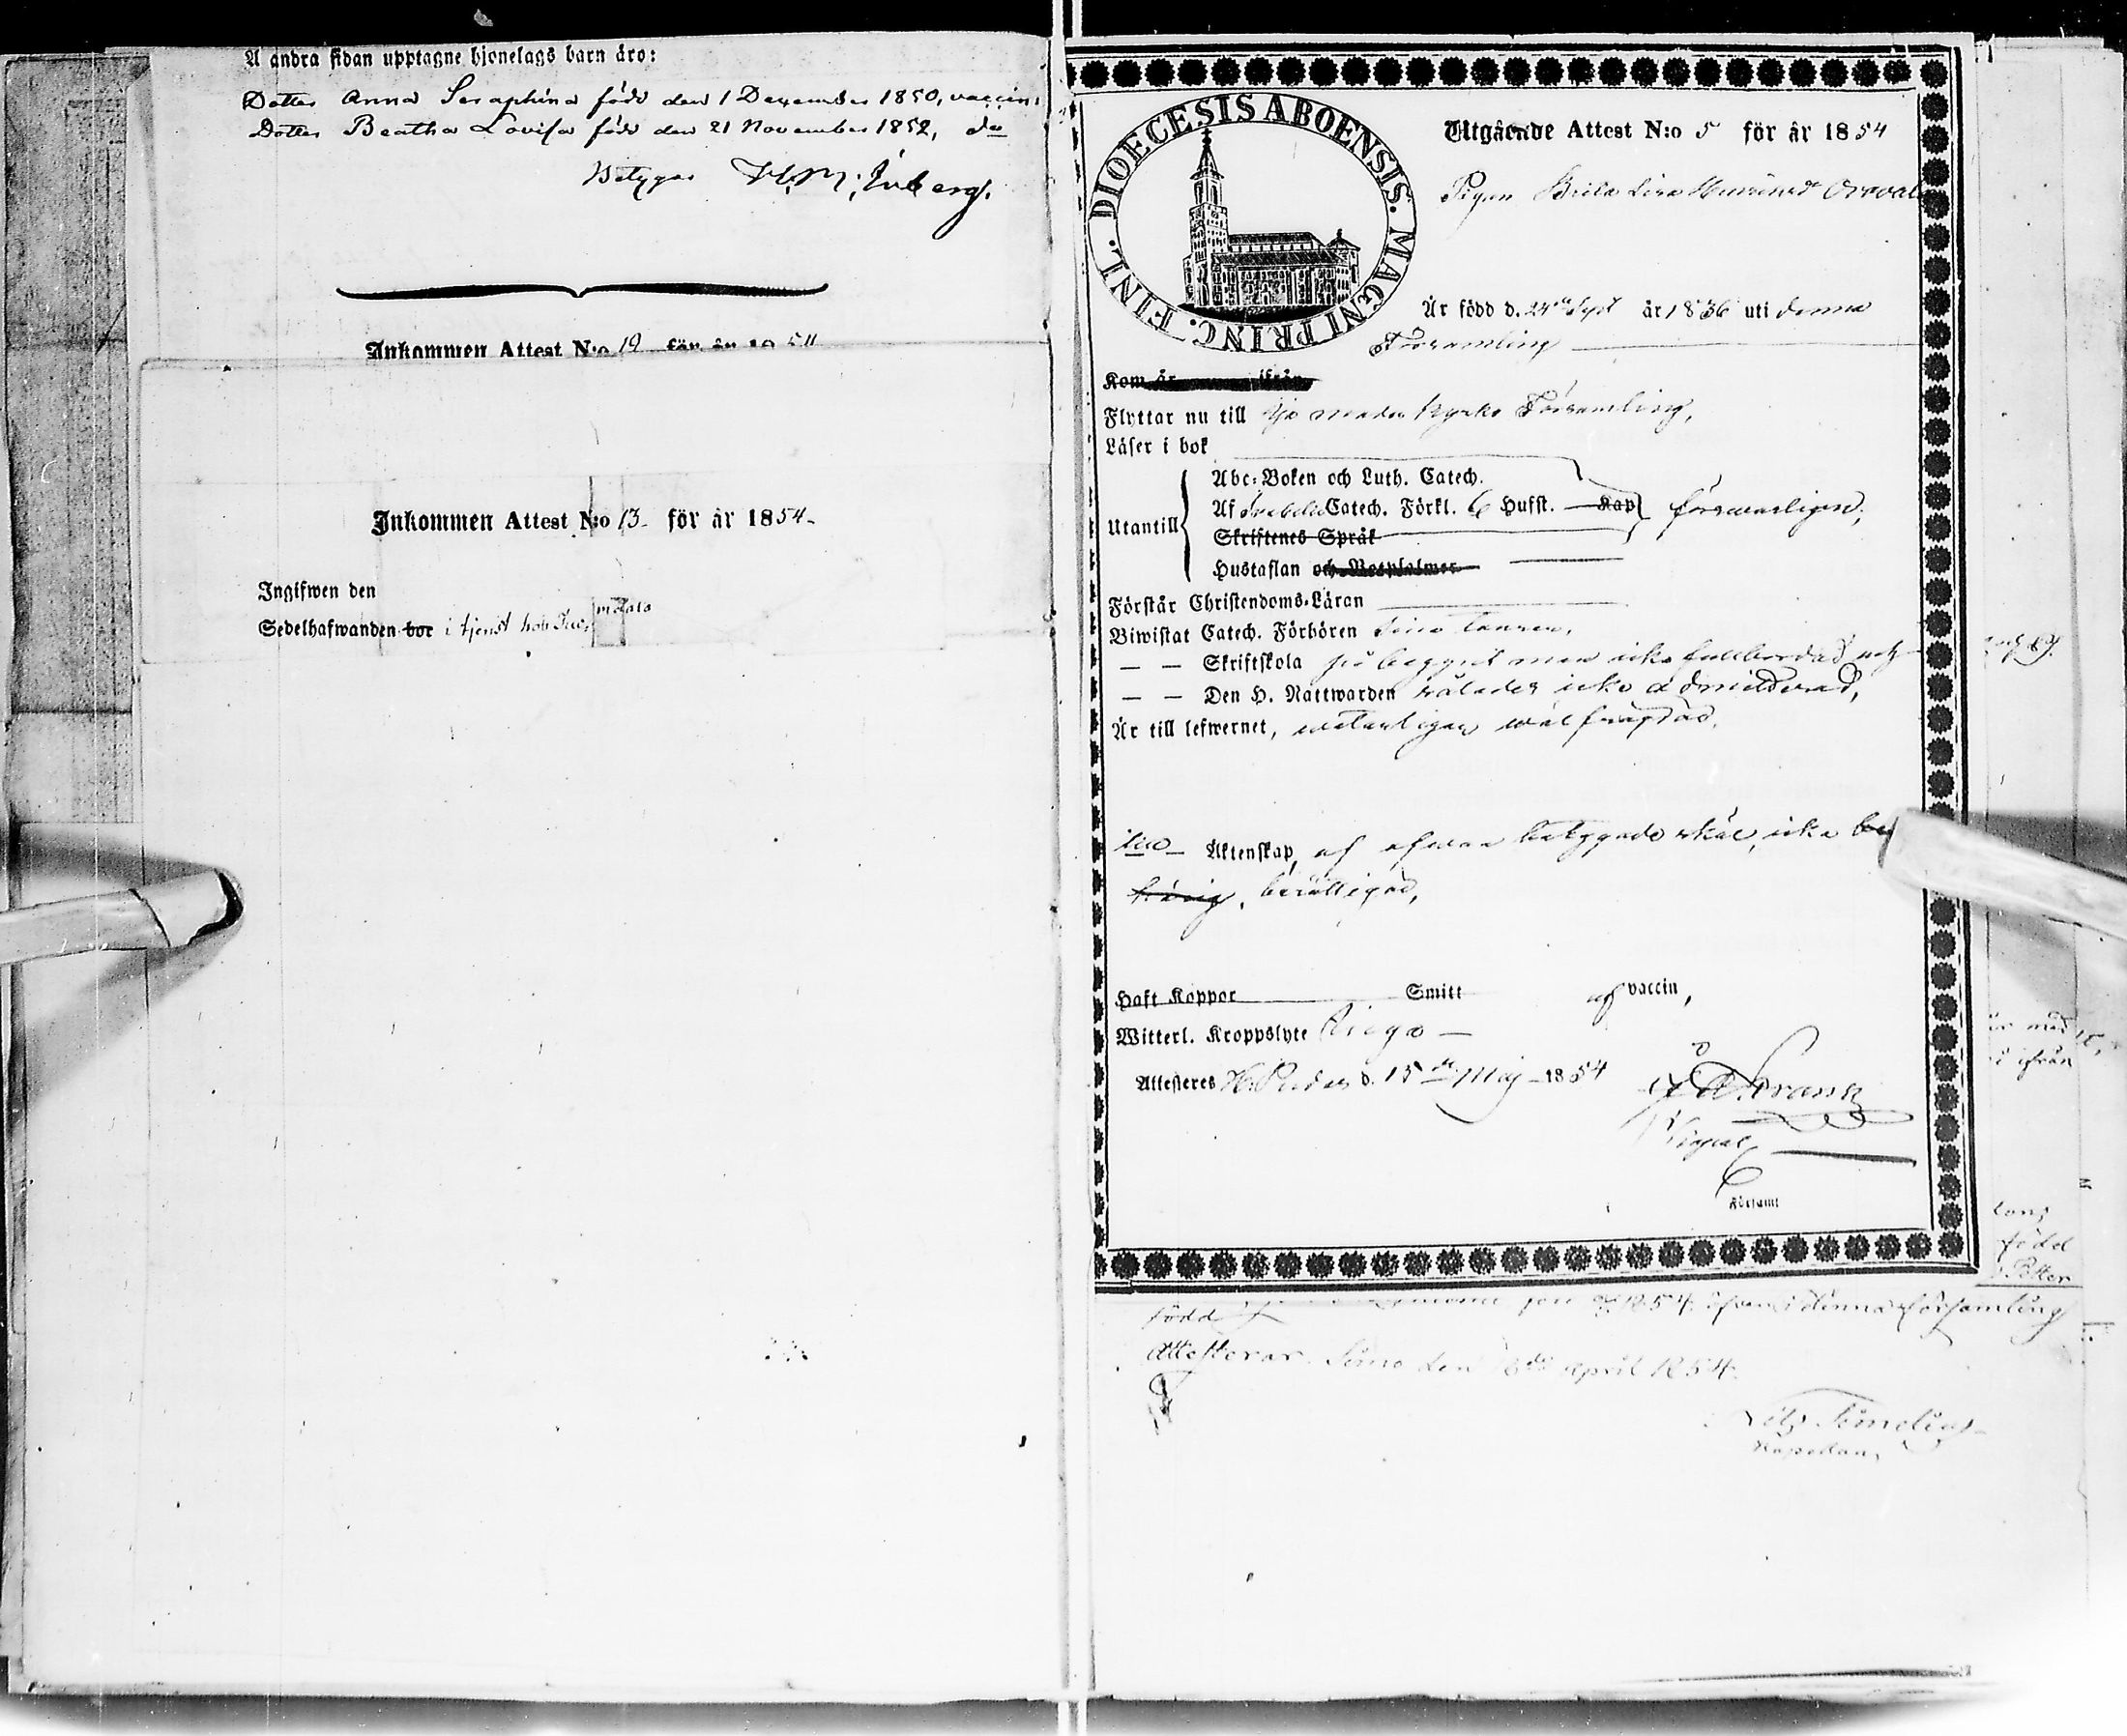 Å andra sidan upptagne hjonelags barn äro:
Dotter Anna Seraphina född den 1 December 1850, vaccin:
Dotter Beatha Lovisa född den 21 November 1852, do
Betygar
Inkommen Attest N:o 12 för år 1854
Inkommen Attest N:o 13 för år 1854
Ingifwen den
Sedelhafwanden bor i tjenst hos
DIOECESIS ABOENSIS. MAGNI PRINC. FINL.
Utgående Attest N:o 5 för år 1854
Pigan Brita Lisa
Är född d. 24de Sept år 1836 uti denna
Församling
Kom år ifrån
Flyttar nu till moder kyrko Församling,
Läser i bok
Utantill
Abc-Boken och Luth. Catech.
Af Svebelii Catech. Förkl. 6 Hufst. Kap försvarligen,
Skriftenes Språk
Hustaflan och Botpsalmer
Förstår Christendoms-Läran
Biwistat Catech. Förhören
— — Skriftskola påbegynt men icke fullbordad och
— — Den H. Nattwarden således icke admitterad,
Är till lefwernet, veterligen välfrägdad.
till Äktenskap, af ofvan betygade skäl, icke
berättigad,
Haft Koppor Smitt af vaccin,
Witterl. Kroppslyte inga
Attesteres d. 15de Maj 1854
Församl
född 1854 denna församling
Attesterar. Simo den april 1854.
Kapellan
ifrån
född
Petter